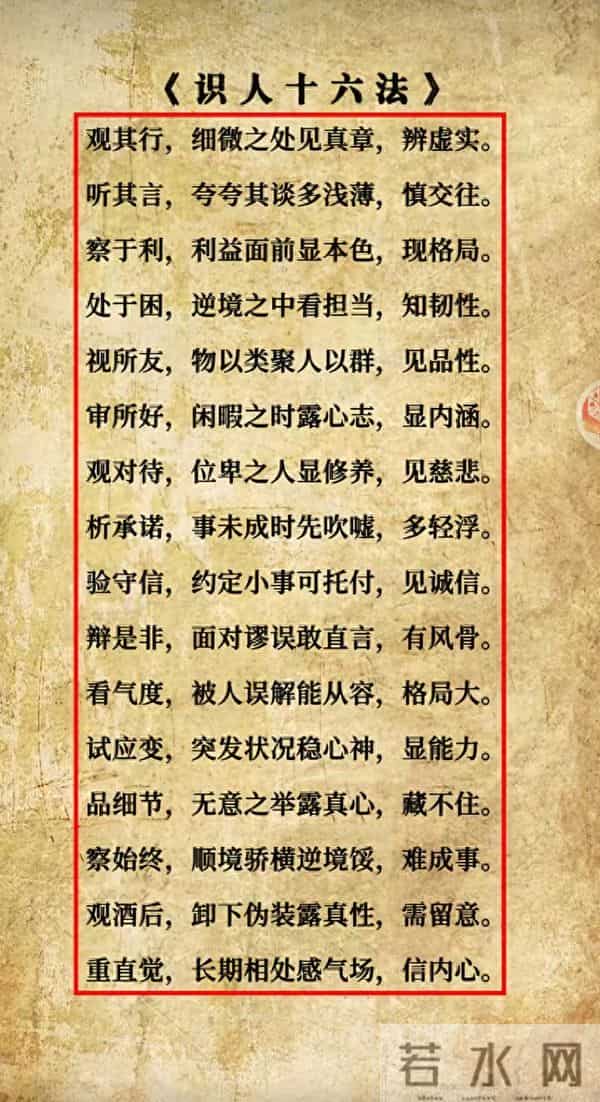 《识人十六法》
观其行，细微之处见真章，辨虚实。
听其言，夸夸其谈多浅薄，慎交往。
察于利，利益面前显本色，现格局。
处于困，逆境之中看担当，知韧性。
视所友，物以类聚人以群，见品性。
审所好，闲暇之时露心志，显内涵。
观对待，位卑之人显修养，见慈悲。
析承诺，事未成时先吹嘘，多轻浮。
验守信，约定小事可托付，见诚信。
辩是非，面对谬误敢直言，有风骨。
看气度，被人误解能从容，格局大。
试应变，突发状况稳心神，显能力。
品细节，无意之举露真心，藏不住。
察始终，顺境骄横逆境馁，难成事。
观酒后，卸下伪装露真性，需留意。
重直觉，长期相处感气场，信内心。
若水网